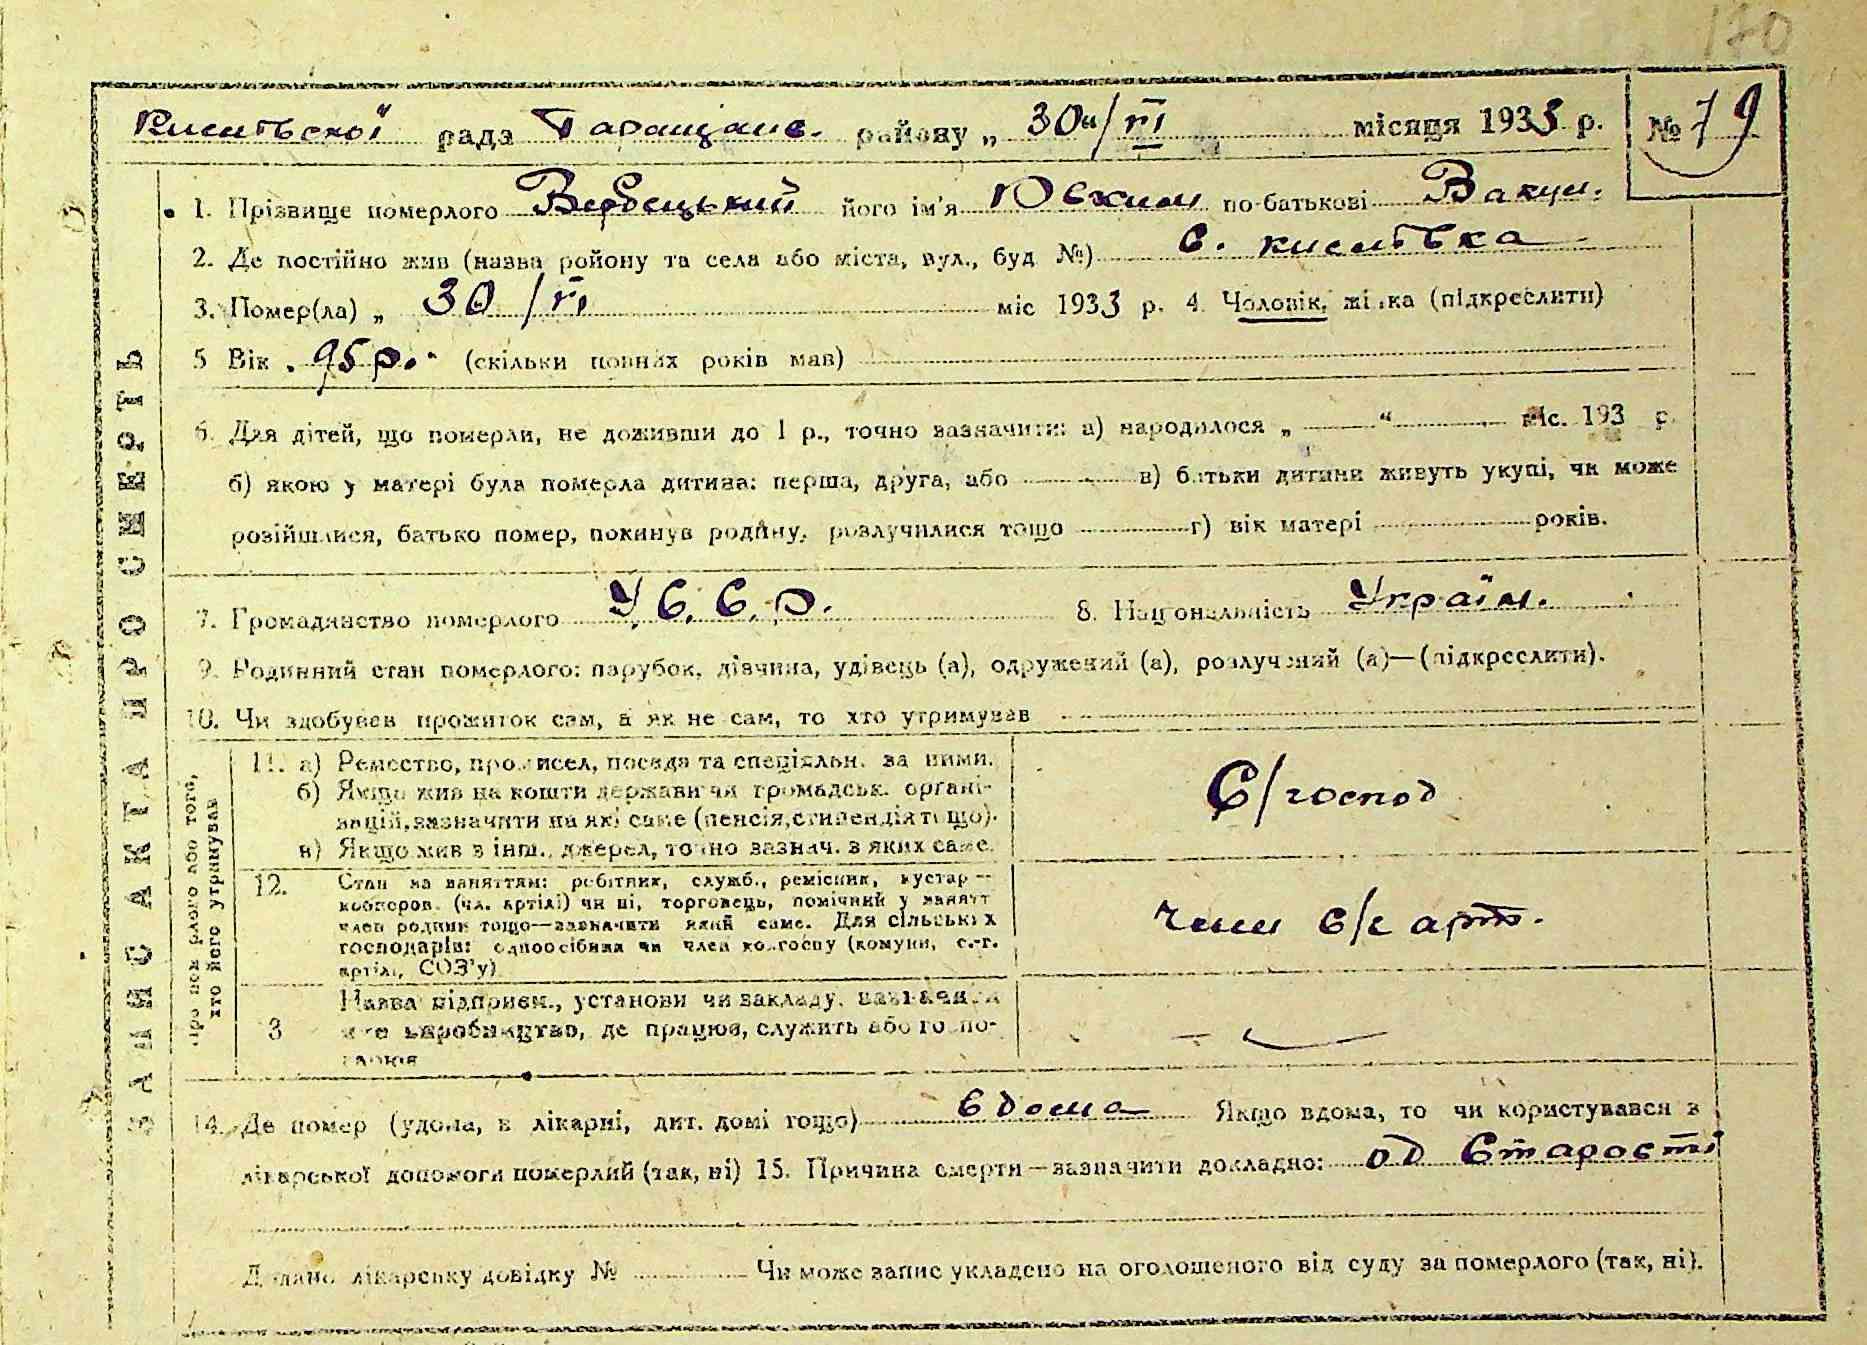 170
Киситвской рада Таращанс. району „ 30“/VI місяця 1933 р. № 79
1. Прізвище померлого Вербецький його ім'я Юхим по-батькові Вакул.
2. Де постійно жив (назва району та села або міста, вул., буд №) с.
3. Помер(ла) „ 30/VI міс 1933 р. 4 Чоловік, жінка (підкреслити)
5 Вік 95 р. (скільки повних років мав)
6. Для дітей, що померли, не доживши до 1 р., точно зазначити: а) народилося „ “ міс. 193 р.
б) якою у матері була померла дитина: перша, друга, або в) батьки дитини живуть укупі, чи може
розійшлися, батько помер, покинув родину, розлучилися тощо г) вік матері років.
7. Громадянство померлого У.С.С.Р. 8. Національність Україн.
9. Родинний стан померлого: парубок, дівчина, удівець (а), одружений (а), розлучений (а)—(підкреслити).
10. Чи здобував прожиток сам, а як не сам, то хто утримував
ЗАПИС АКТА ПРО СМЕРТЬ
про померлого або того,
хто його утримував
11. а) Ремество, промисел, посада та спеціяльн. за ними.
б) Якщо жив на кошти держави чи громадськ. органі-
зацій, зазначити на які саме (пенсія, стипендія тощо).
в) Якщо жив з інш., джерел, точно зазнач. з яких саме.
С/господ
12. Стан за заняттям: робітник, служб., ремісник, кустар—
коопєров. (чл. артілі) чи ні, торговець, помічний у занятт
член родини тощо—зазначити який саме. Для сільських
господарів: одноосібник чи член колгоспу (комуни, с.-г.
артілі, СОЗ'у)
член с/г арт.
3 Назва підприєм., установи чи закладу, зазначити
яке виробництво, де працює, служить або госпо-
дарює
14. Де помер (удома, в лікарні, дит. домі тощо) вдома Якщо вдома, то чи користувався з
лікарської допомоги померлий (так, ні) 15. Причина смерти—зазначити докладно: од старості
Додано лікарську довідку № Чи може запис укладено на оголошеного від суду за померлого (так, ні).